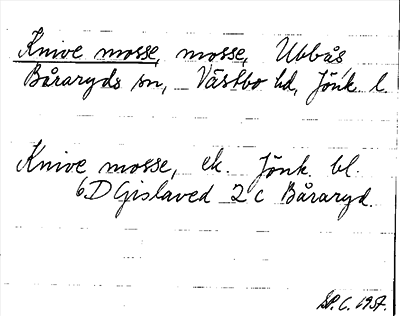 Knive mosse, mosse, Ubbås,
Båraryds sn, Västbo hd, Jönk l
Knive mosse, ek. Jönk. bl.
6D Gislaved 2c Båraryd.
1957.